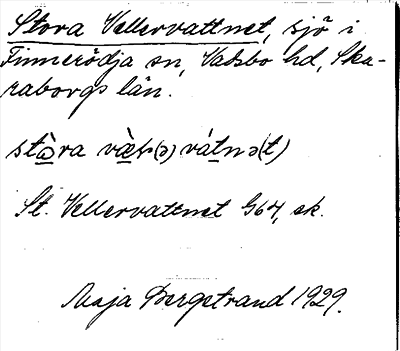 Stora Vellervattnet, sjö i
Finnerödja sn, Vadsbo hd, Ska-
raborgs län.
St. Vellervattnet G64, ek.
Maja Bergstrand 1929.